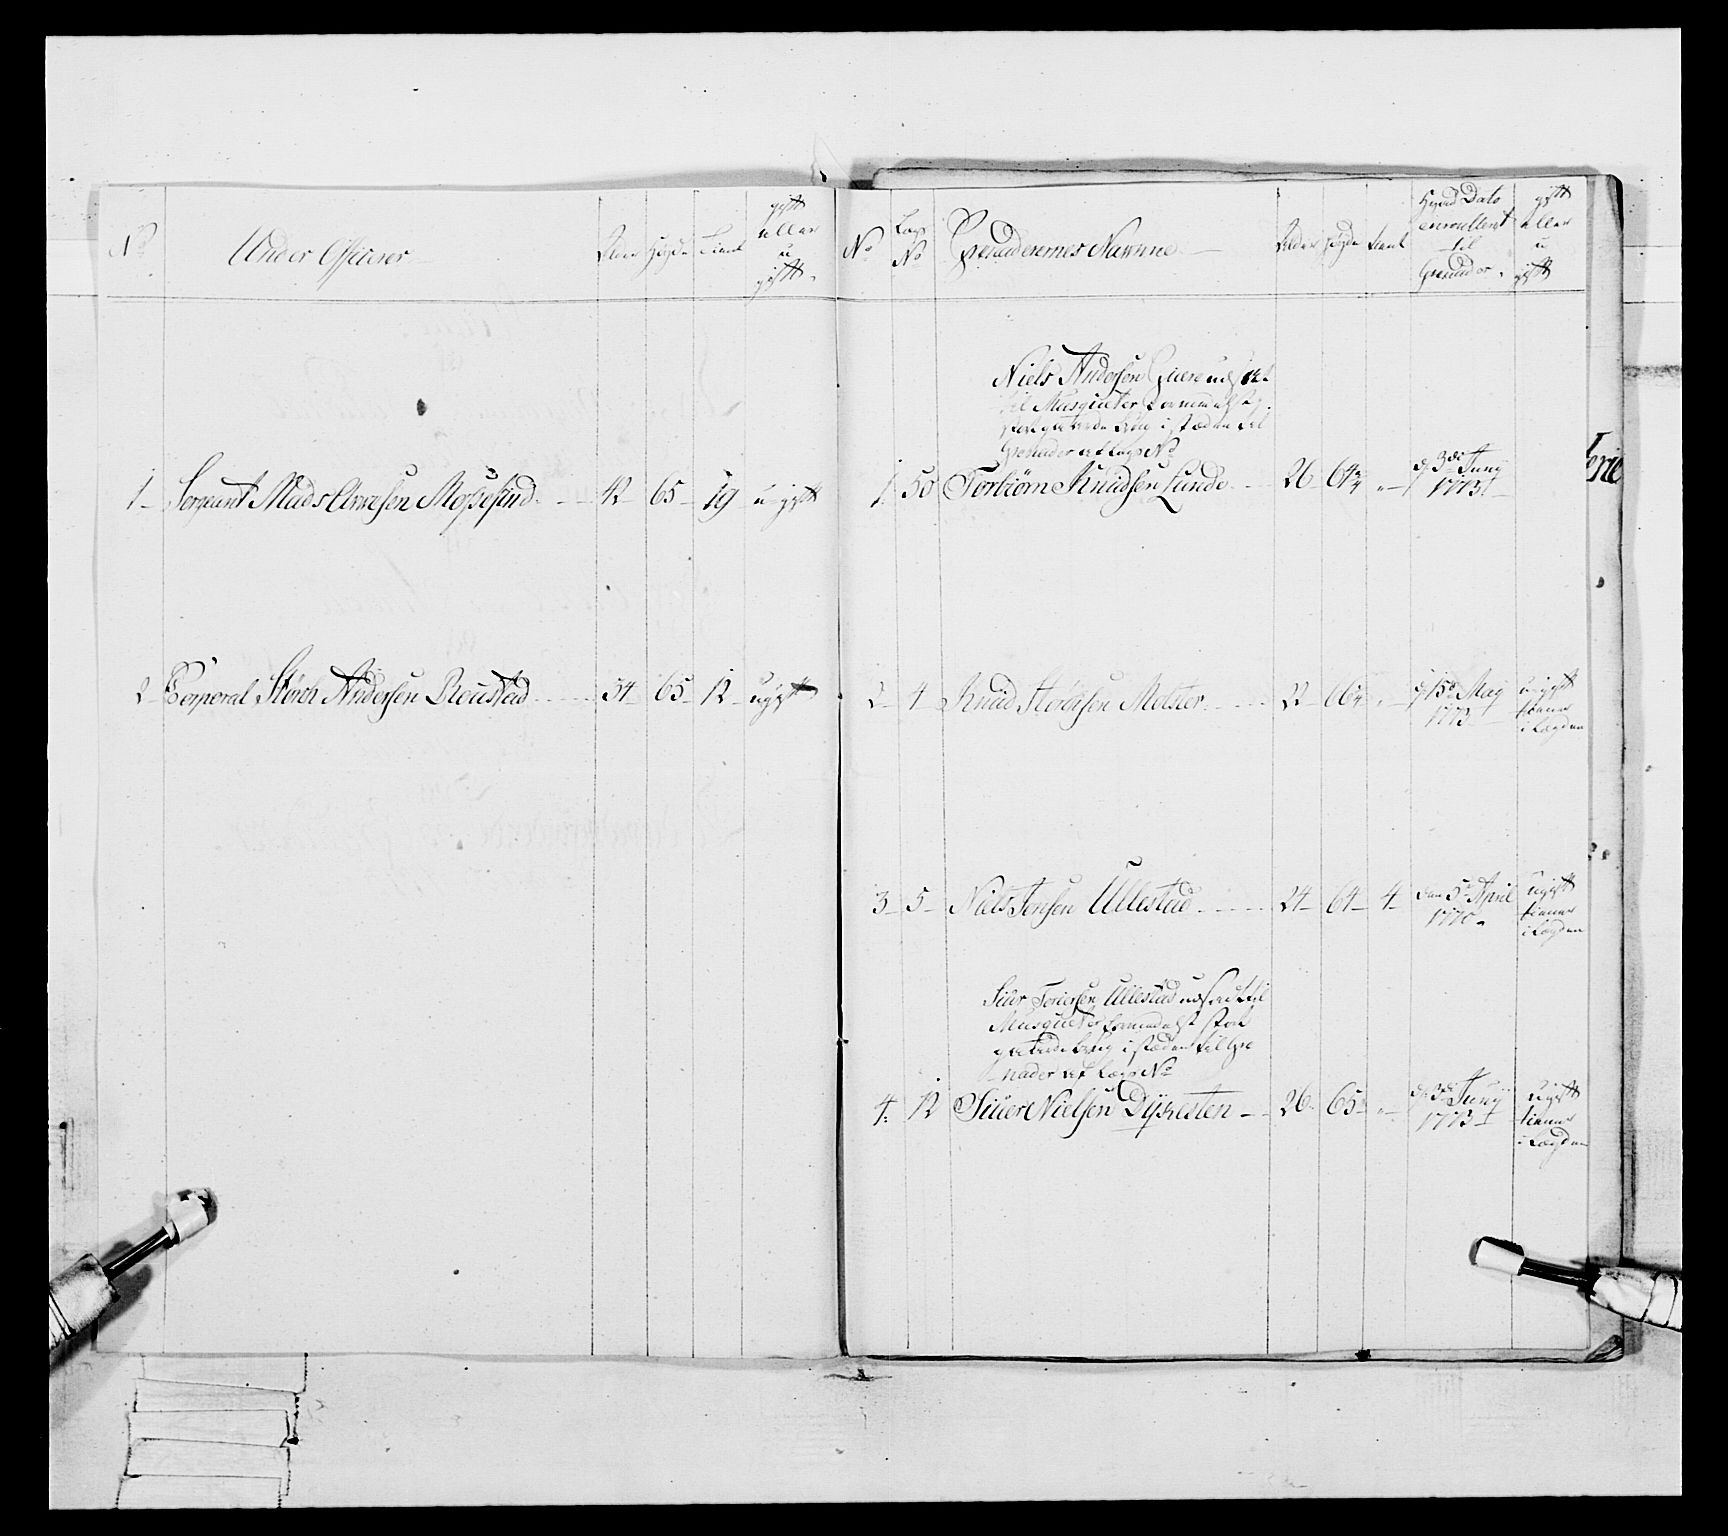 No
Under Officerer
Alder
Høyde
Tient
gift
eller
u
gift
1 Sergeant Mads Arnesen Mossefind 42 65 19 u gift
2 Corporal Størch Andersen Reustad 34 65 12 ugift
No
Lægs
No
Grenaderernes Nafvne
Alder
Høyde
Tient
Hvad Dato
enroullert
til
Grenader
gift
eller
u
gift
Niels Andersen udsat
til Musqueter formedelst
i stæden til
Grenader af Lægs No
1 50 Torbiørn Knudsen Lunde 26 64 3/4 d 3de Juny
1773
2 4 Knud Melster 22 66 d 15 May
1773
ugift
tienner
i Lægden
3 5 Niels Jensen Ullestad 24 64 4 den 5te April
1770
ugift
tienner
i Lægden
Siur Ullestad udsadt til
Musqueter formedelst
i stæden til Gre
nader af Lægs No
4 12 Siuer Nielsen Dyvesten 26 65 d 3de Juny
1773
ugift
tienner
i Lægden